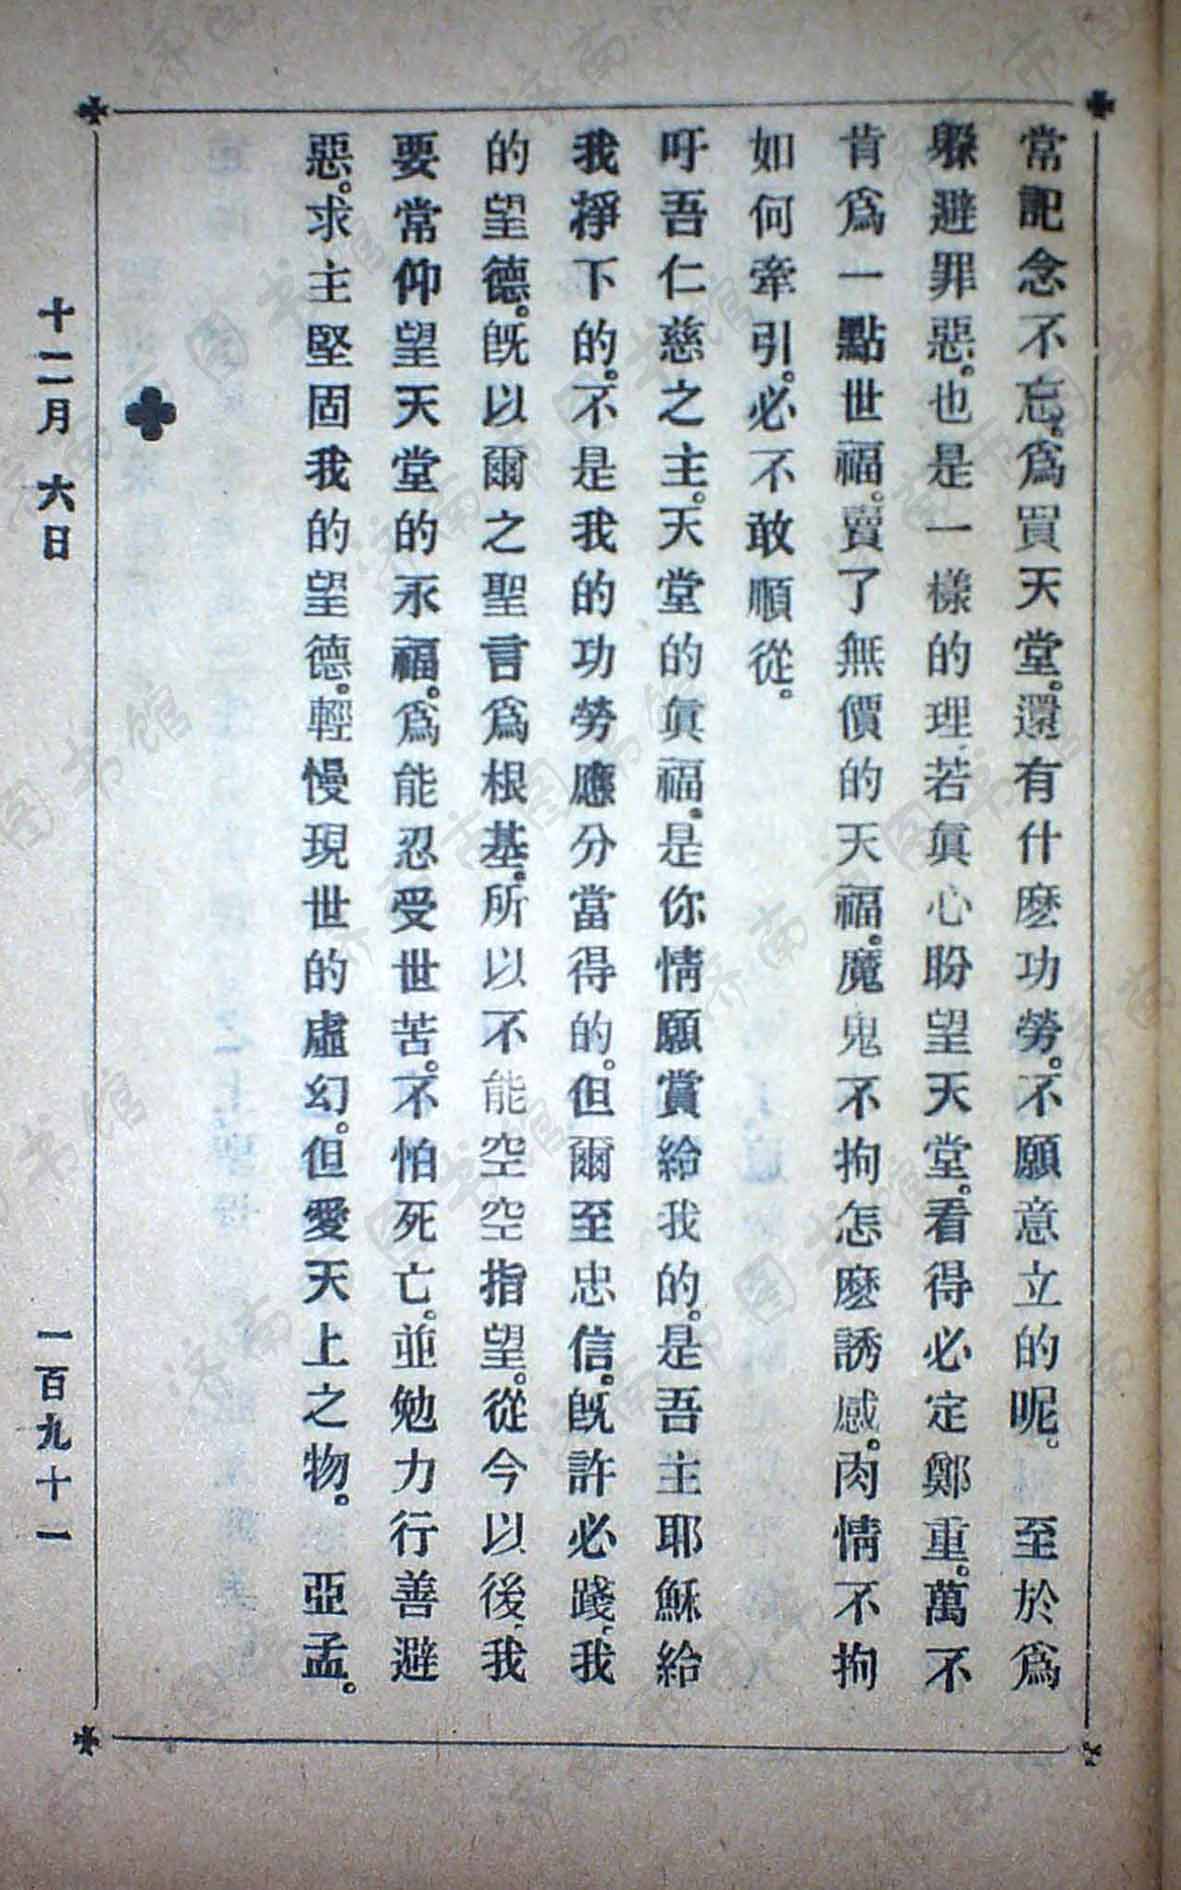 常記念不忘。爲買天堂。還有什麽功勞。不願意立的呢。　至於爲
躱避罪惡。也是一樣的理若眞心盼望天堂。看得必定鄭重。萬不
肯爲一點世福。賣了無價的天福。魔鬼不拘怎麽誘感。肉情不拘
如何牽引。必不敢順從。
吁吾仁慈之主。天堂的眞福。是你情願賞給我的。是吾主耶穌給
我掙下的。不是我的功勞應分當得的。但爾至忠信。旣許必踐、我
的望德。旣以爾之聖言爲根基。所以不能空空指望。從今以後、我
要常仰望天堂的永福。爲能忍受世苦。不怕死亡。並勉力行善避
惡。求主堅固我的望德。輕慢現世的虛幻。但愛天上之物。　亞孟。
十二月 六日
一百九十一